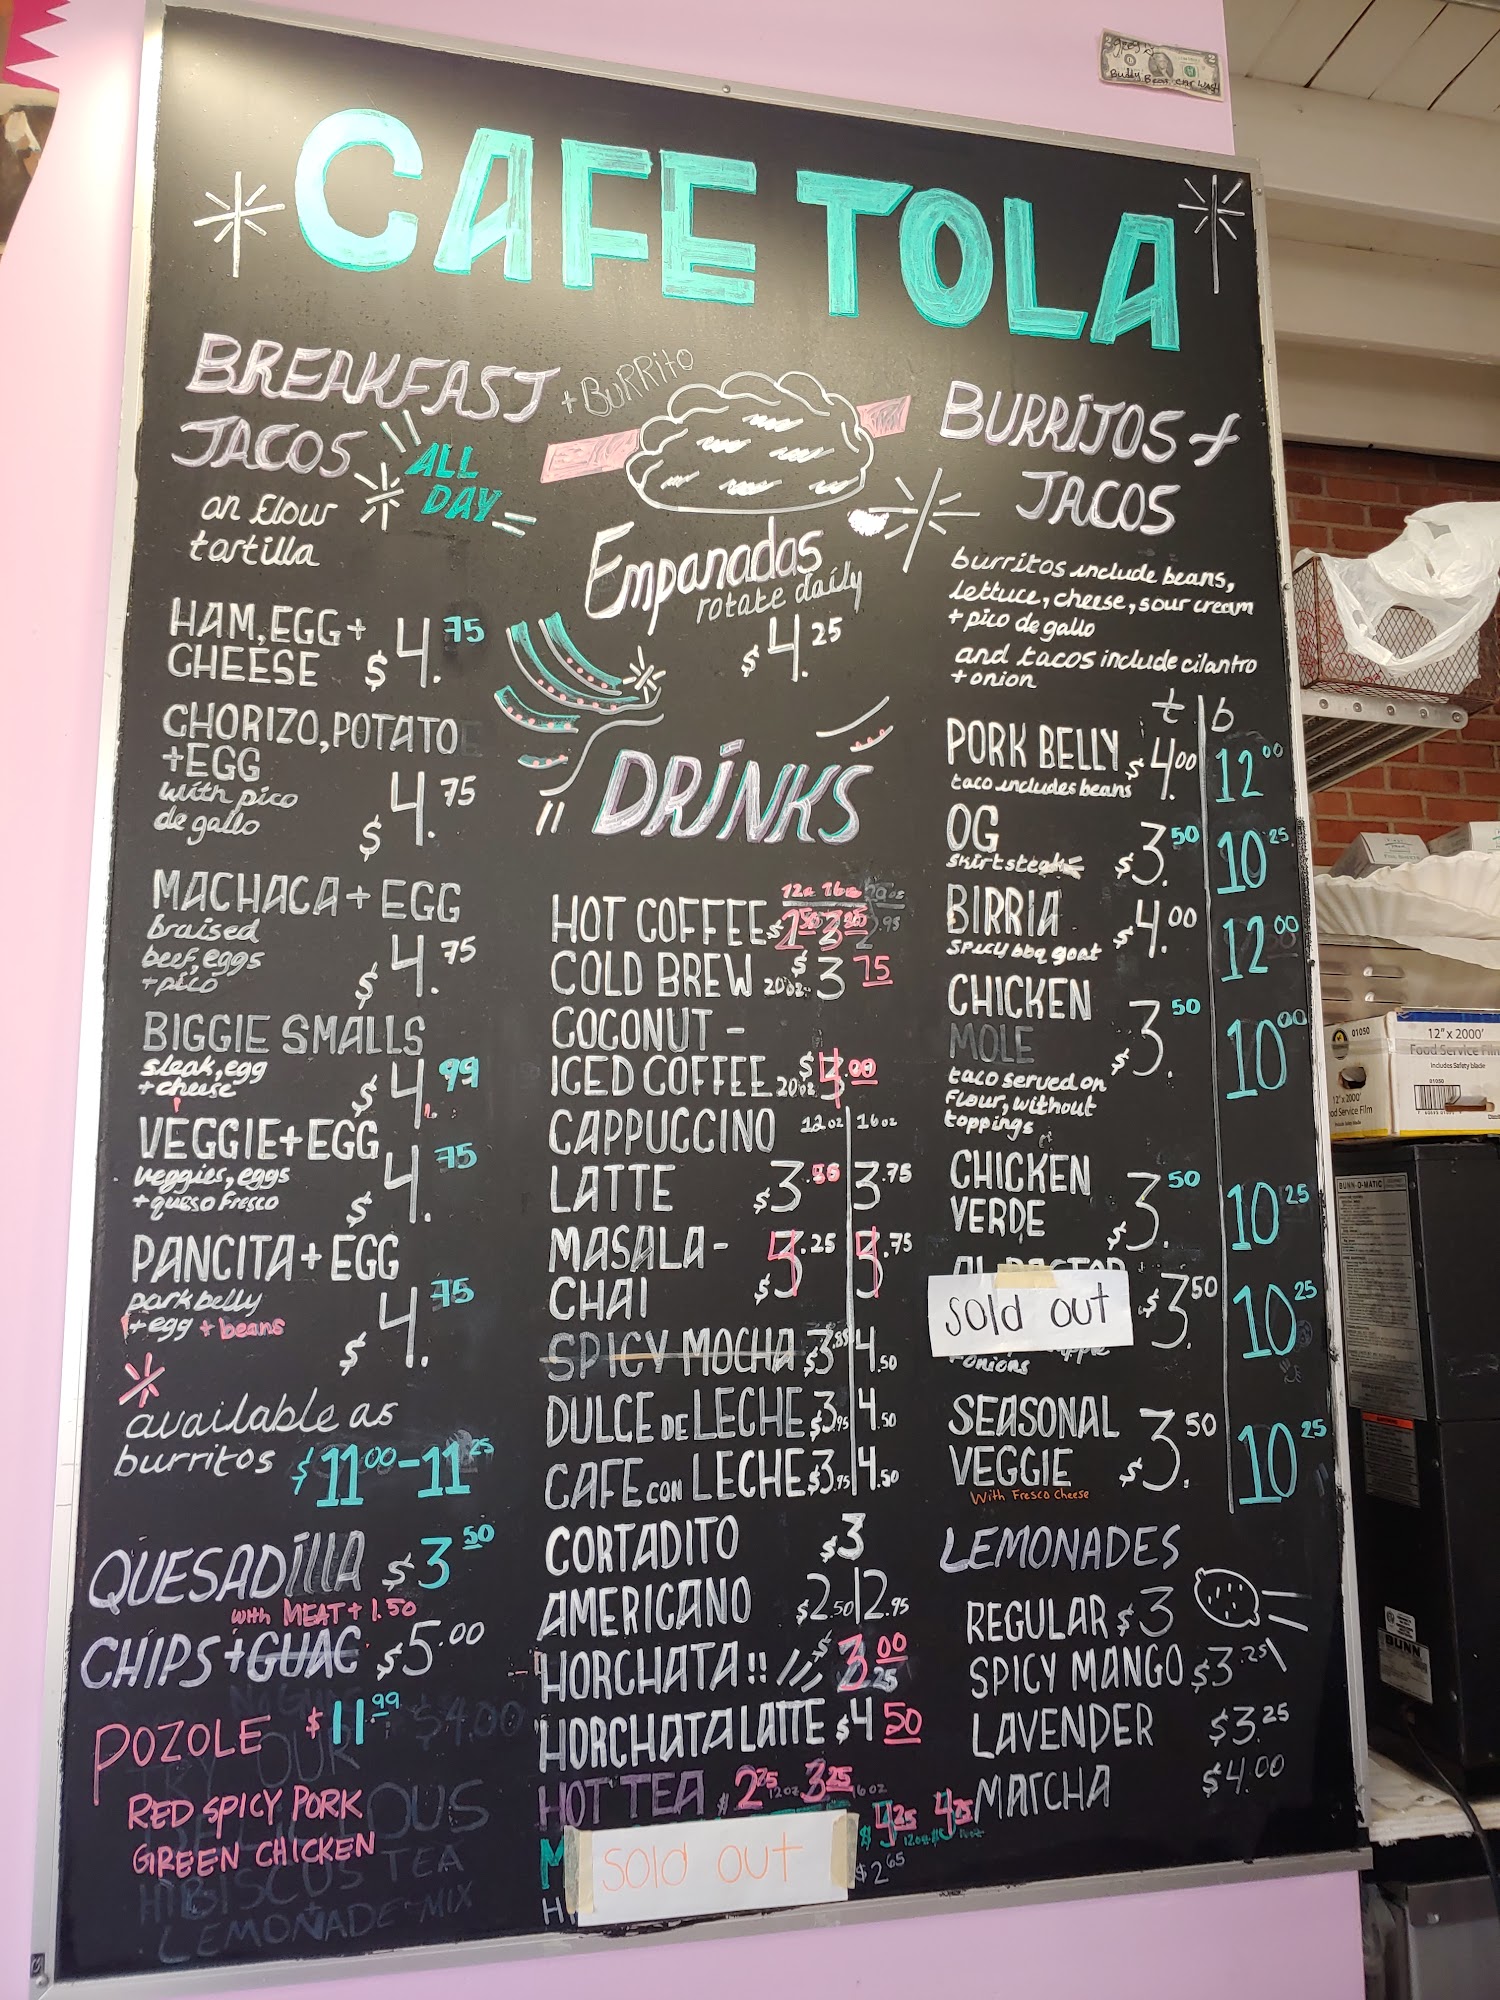 CAFE TOLA
BREAKFAST + BURRITO
TACOS
ALL
DAY
on flour
tortilla
HAM, EGG +
CHEESE $4.75
CHORIZO, POTATO
+ EGG
with pico
de gallo $4.75
MACHACA + EGG
braised
beef, eggs
+ pico $4.75
BIGGIE SMALLS
steak, egg
+ cheese $4.99
VEGGIE + EGG
veggies, eggs
+ queso fresco $4.75
PANCITA + EGG
pork belly
+ egg + beans $4.75
available as
burritos $11.00-11.25
QUESADILLA $3.50
with MEAT + 1.50
CHIPS + GUAC $5.00
POZOLE $11.99
RED SPICY PORK
GREEN CHICKEN
TRY OUR
DELICIOUS
HIBISCUS TEA
LEMONADE MIX
$4.00
Empanadas
rotate daily
$4.25
DRINKS
12oz 16oz
HOT COFFEE
COLD BREW 20oz $3.75
COCONUT-
ICED COFFEE 20oz $4.00
CAPPUCCINO 12oz 16oz
LATTE $3. 3.75
MASALA-
CHAI
SPICY MOCHA $3.95 4.50
DULCE DE LECHE $3.95 4.50
CAFE CON LECHE $3.95 4.50
CORTADITO $3
AMERICANO $2.50 2.95
HORCHATA!! $3.00
HORCHATA LATTE $4.50
HOT TEA $2.75 12oz 3.25 16oz
$4.25 4.75
M
sold out
$2.65
H
BURRITOS +
TACOS
burritos include beans,
lettuce, cheese, sour cream
+ pico de gallo
and tacos include cilantro
+ onion
t b
PORK BELLY $4.00 12.00
taco includes beans
OG $3.50 10.25
skirt steak
BIRRIA $4.00 12.00
spicy bbq goat
CHICKEN
MOLE $3.50 10.00
taco served on
flour, without
toppings
CHICKEN
VERDE $3.50 10.25
AL PASTOR
sold out $3.50 10.25
+ onions
SEASONAL
VEGGIE $3.50 10.25
With Fresco Cheese
LEMONADES
REGULAR $3
SPICY MANGO $3.25
LAVENDER $3.25
MATCHA $4.00
Buddy Bear Car Wash
01050
12" x 2000'
Food Service Film
Includes Safety blade
01050
12" x 2000'
od Service Film
BUNN-O-MATIC
BUNN